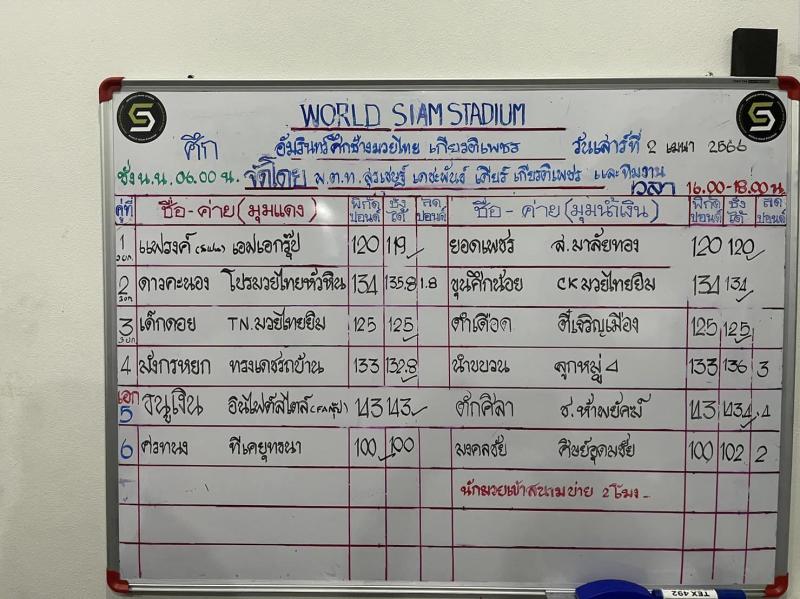 WORLD SIAM STADIUM
ศึก อัมรินทร์ศึกช้างมวยไทย เกียรติเพชร วันเสาร์ที่ 2 เมษา 2566
ชั่ง น.น. 06.00 น. จัดโดย พ.ต.ท. สุรเชษฐ์ เดชะพันธ์ เสี่ยร์ เกียรติเพชร และทีมงาน เวลา 16.00-18.00 น.
คู่ที่ ชื่อ-ค่าย (มุมแดง) พิกัดปอนด์ ชั่งได้ ลดปอนด์ ชื่อ-ค่าย (มุมน้ำเงิน) พิกัดปอนด์ ชั่งได้ ลดปอนด์
1 แฟรงค์ เอมเอกรุ๊ป 120 119 ยอดเพชร ส.มาลัยทอง 120 120
2 ดาวคะนอง โปรมวยไทยหัวหิน 134 135.8 1.8 ขุนศึกน้อย CK มวยไทยยิม 134 134
3 เด็กดอย T.N.มวยไทยยิม 125 125 ดำเดือด ตี๋เจริญเมือง 125 125
4 มังกรหยก ทรงเดชรถบ้าน 133 132.8 นำขบวน ลูกหมู่4 133 136 3
เอก 5 ธนูเงิน อินไฟต์สไตล์ 143 143 ตักศิลา ช.ห้าพยัคฆ์ 143 143.4 .4
6 ศรทนง ทีเคยุทธนา 100 100 มงคลชัย ศิษย์อุดมชัย 100 102 2
นักมวยเข้าสนามบ่าย 2 โมง
TEX 492